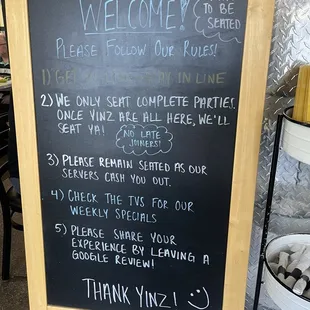 WELCOME!
TO BE
SEATED
PLEASE FOLLOW OUR RULES!
1) IN LINE
2) WE ONLY SEAT COMPLETE PARTIES.
ONCE YINZ ARE ALL HERE, WE'LL
SEAT YA!
NO LATE
JOINERS!
3) PLEASE REMAIN SEATED AS OUR
SERVERS CASH YOU OUT.
4) CHECK THE TVS FOR OUR
WEEKLY SPECIALS
5) PLEASE SHARE YOUR
EXPERIENCE BY LEAVING A
GOOGLE REVIEW!
THANK YINZ! :)